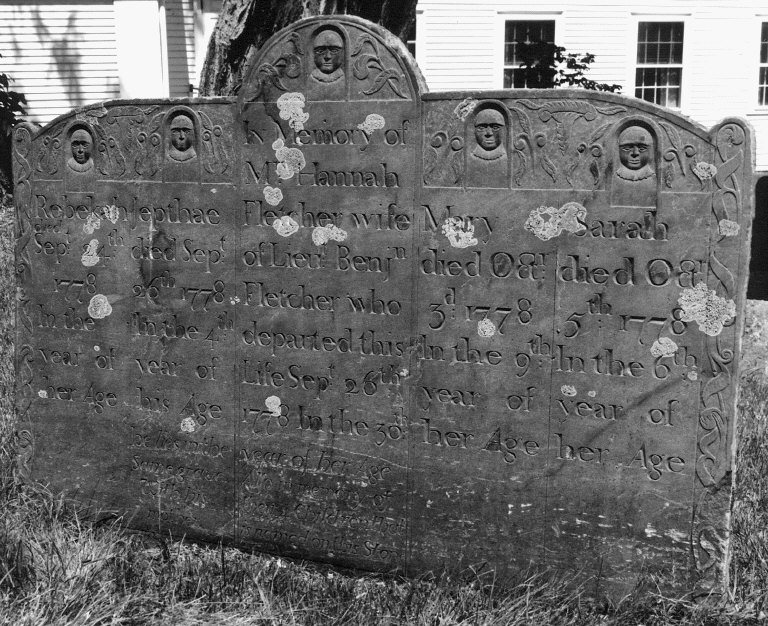 Rebekah
died
Sept 4th
1778
In the
year of
her Age
Jepthae
died Sept
26th 1778
In the 4th
year of
his Age
he lies in the
Same grave
In Memory of
Mrs Hannah
Fletcher wife
of Lieut Benjn
Fletcher who
departed this
Life Sept 26th
1778 In the 30th
year of her Age
named on this Ston
Mary
died Octr
3d 1778
In the 9th
year of
her Age
Sarah
died Octr
5th 1778
In the 6th
year of
her Age